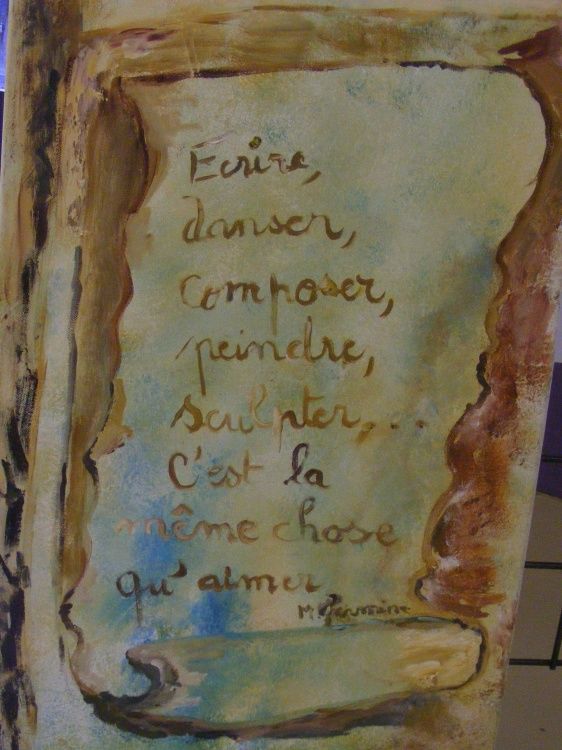 Ecrire,
danser,
composer,
peindre,
sculpter,...
C'est la
même chose
qu'aimer